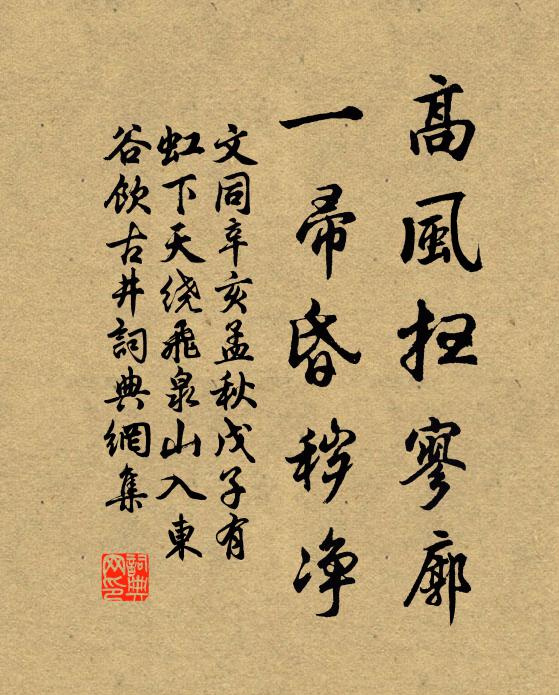 高風扫寥廓
一帚昏秽净
文同辛亥孟秋戊子有
虹下天绕飛泉山入東
谷饮古井詞典網集
詞典
网印